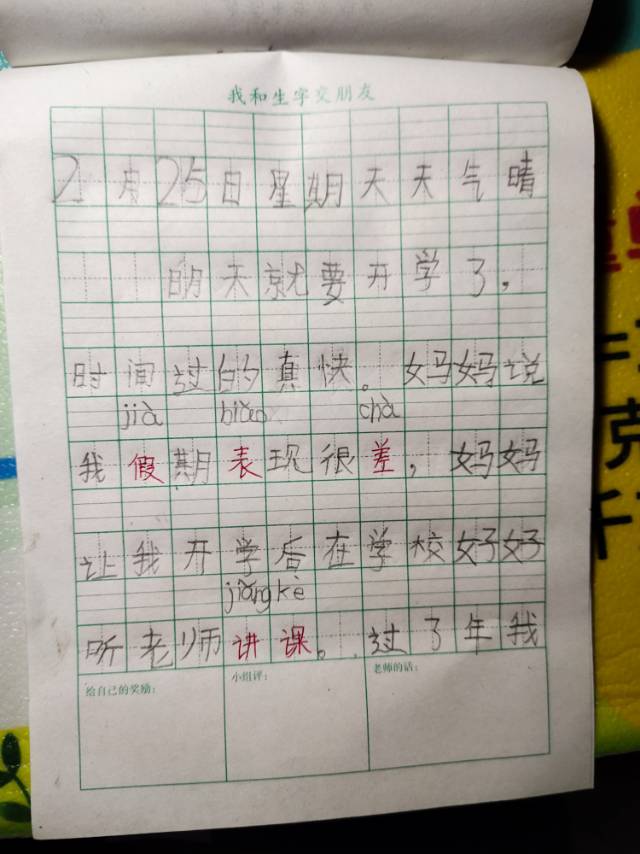 我和生字交朋友
2月25日星期天天气晴
明天就要开学了，
时间过的真快。妈妈说
jià biǎo chà
我假期表现很差，妈妈
让我开学后在学校好好
jiǎng kè
听老师讲课。过了年我
给自己的奖励：
小组评：
老师的话：